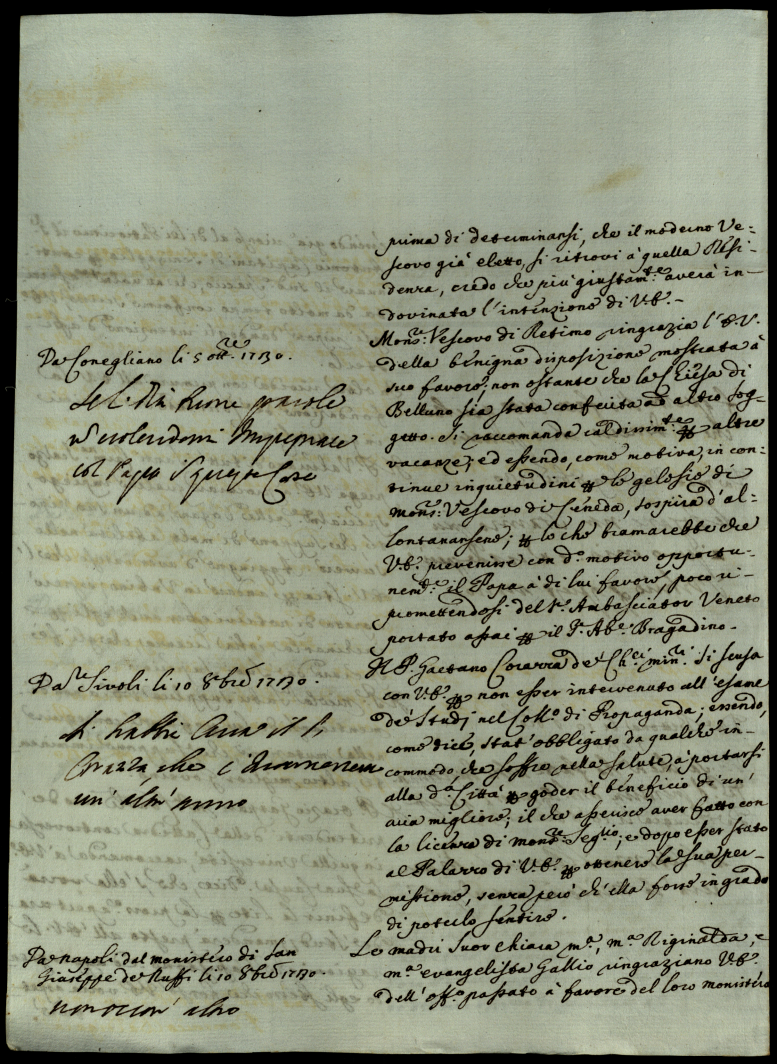 prima di determinarsi, che il moderno Ve=
scovo già eletto, si ritrovi à quella Resi-
denza, credo che più giustam.te averà in-
dovinata l'intenzione di V.E. -
Da Conegliano li 5 ott.re 1730.
Mons.r Vescovo di Retimo ringrazia l'E.V.
della benigna disposizione mostrata à
suo favore, non ostante che la Chiesa di
Belluno sia stata conferita ad altro sog-
getto. Si raccomanda caldissim.te p altre
vacanze; ed essendo, come motiva, in con-
tinue inquietudini p le gelosie di
Mons.r Vescovo di Ceneda, sospira d'al-
lontanarsene; p lo che bramarebbe che
V.E. prevenisse con d.o motivo opportu-
nem.te il Papa à di lui favore, poco ri-
promettendosi del S.r Ambasciator Veneto
portato assai p il S.r Ab.e Bragadino.
col Papa
Da Tivoli li 10 8bre 1730.
Il P. Gaetano de Ch.ci min.ri si scusa
con V.E. p non esser intervenuto all'esame
de' Studj nel Coll.o di Propaganda; essendo,
come dice, stat'obbligato da qualche in-
commodo, che soffre nella salute, à portarsi
alla d.a Città p goder il beneficio di un'
aria migliore; il che asserisce aver fatto con
la licenza di mons.r Seg.rio; e dopo esser stato
al Palazzo di V.E. p ottenere la sua per-
missione, senza però ch'ella fosse in grado
di poterlo sentire.
un' altr' anno
Da Napoli dal monistero di San
Giuseppe de Ruffi li 10 8bre 1730.
Le madri Suor Chiara m.a, m.a Riginalda, e
m.a evangelista Gallio ringraziano V.E.
dell'off.o passato à favore del loro monistero
non occorr' altro